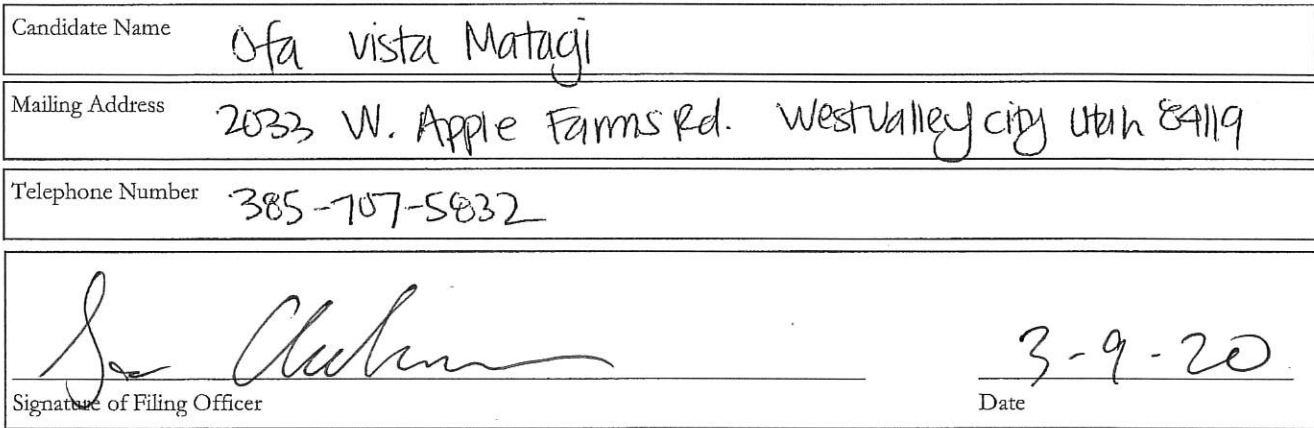 Candidate Name Ofa vista Matagi
Mailing Address 2033 W. Apple Farms Rd. West Valley city Utah 84119
Telephone Number 385-707-5832
3-9-20
Signature of Filing Officer Date